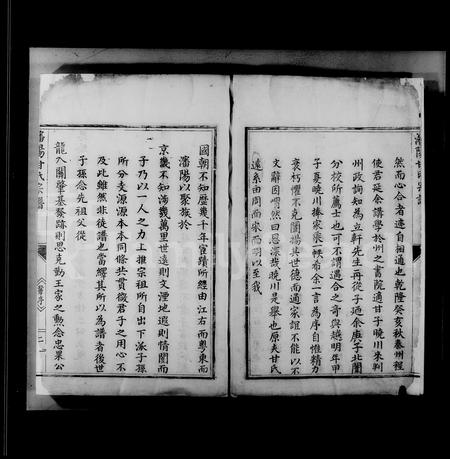 然而心合者遂自相通也乾隆癸亥秋秦州程
使君延余講學於州之書院適甘子曉川來判
州政詢知為立軒先生再從子廼余庚子北闈
分校所薦士也可不謂遇合之奇與越明年甲
子夏曉川捧家乘一帙希余一言為序自惟精力
衰朽懼不克闡揚其世德而通家誼不能以不
文辭因喟然曰思深哉曉川是舉也原夫甘氏
遠系由周而宋而明以至我
國朝不知歷幾千年宦蹟所經由江右而粵東而
瀋陽以聚族於
京畿不知沛幾萬里世遠則文湮地遐則情闊而
子乃以一人之力上推宗祖所自出下派子孫
所分支源源本本同條共貫微君子之用心不
及此雖然非徒譜也當繹其所以為譜者後世
子孫念先祖父從
龍入關肇基發跡則思克勤王家之勲念忠果公
瀋陽甘氏宗譜